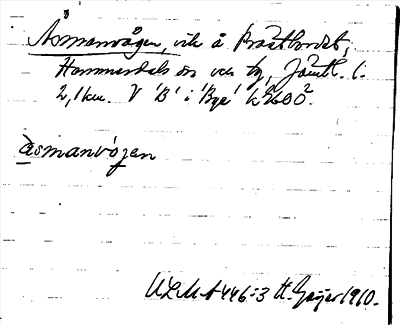 Åsmanvågen, vik å Prästbordet,
Hammerdals sn och tg, Jämtl. l.
2,1 km. V 'B' i 'Bye' k
åsmanvǫgen
ULMA 446:3 H. Geijer 1910.